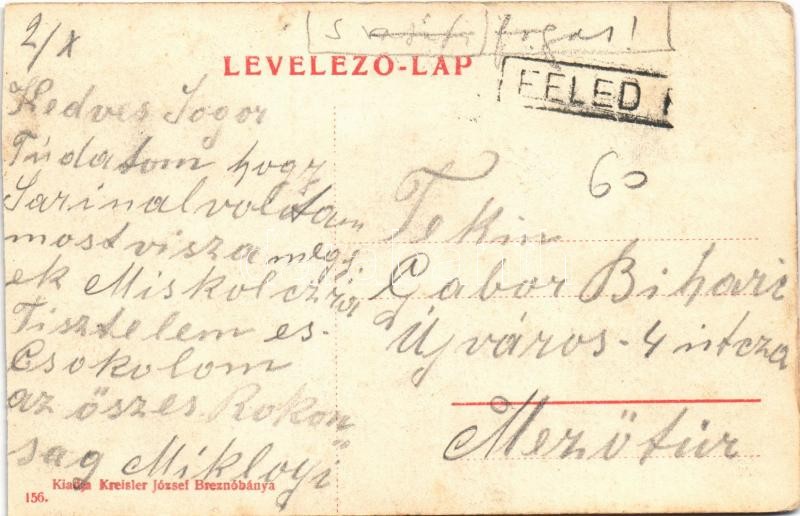 2/X
fogas!
LEVELEZŐ-LAP
FELED
60
Kedves Sogor
Tudatom hogy
Sarinal voltam
most visza megy
ek Miskolczra
Tisztelem es-
Csokolom
az öszes Rokon
sag Miklosi
Tekin
Gabor Bihari
Újváros-4 utcza
Mezötúr
Kiadja Kreisler József Breznóbánya
156.